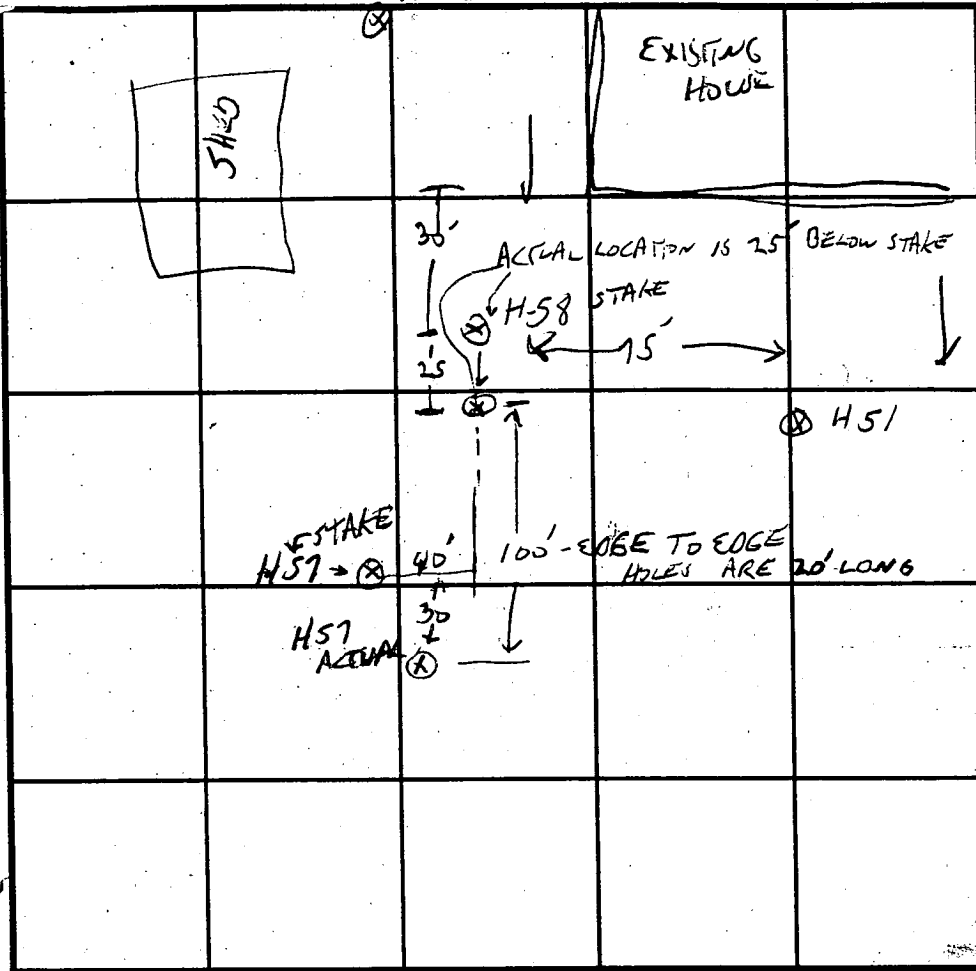 EXISTING
HOUSE
SHED
30'
ACTUAL LOCATION IS 25' BELOW STAKE
H-58 STAKE
25'
H51
STAKE
H57
40'
100' - EDGE TO EDGE
HOLES ARE 20' LONG
30
H57
ACTUAL